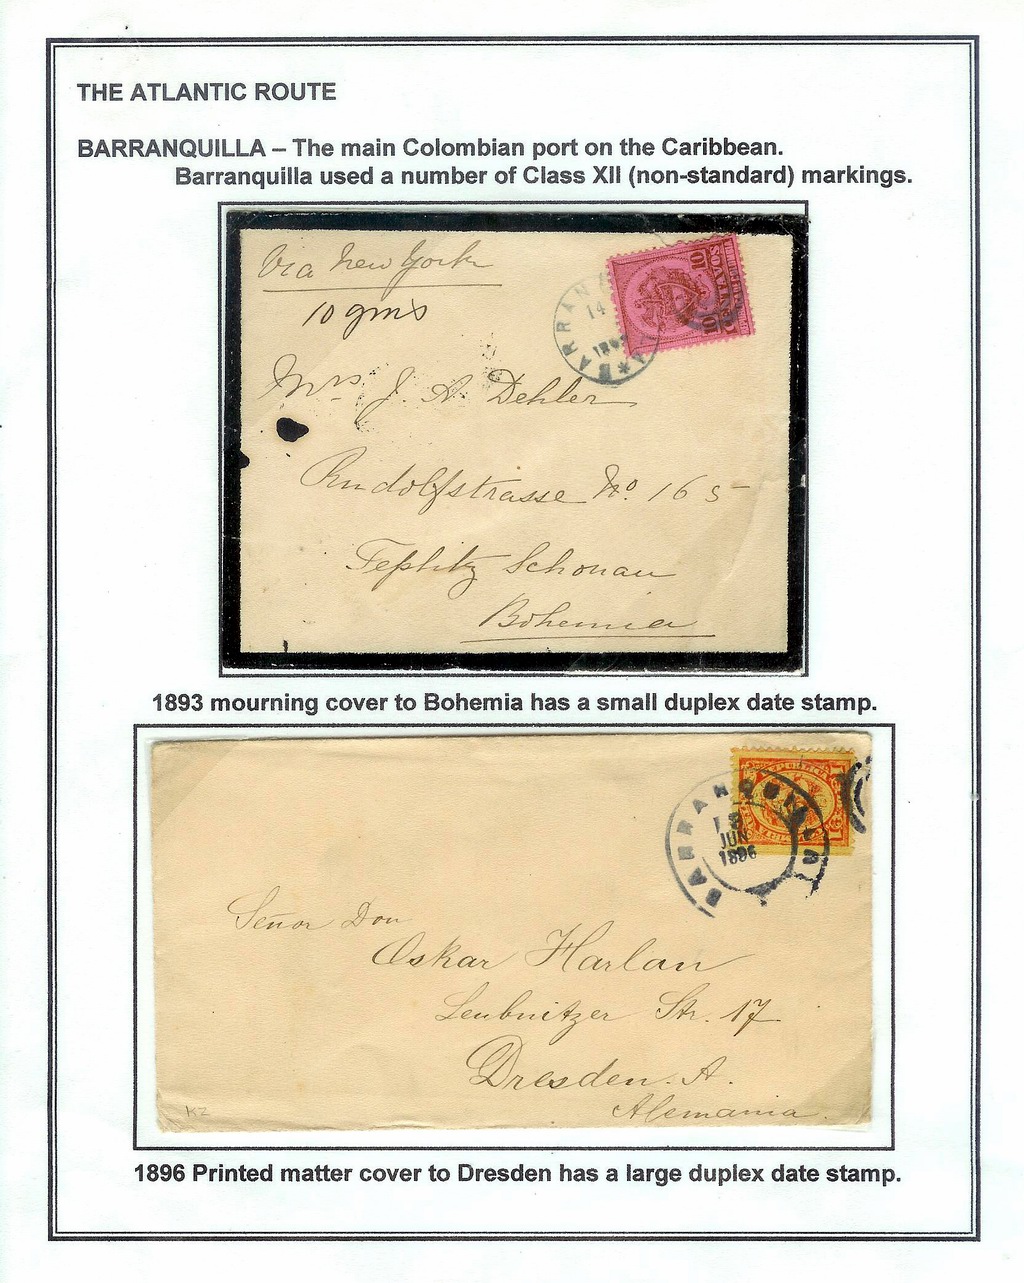 THE ATLANTIC ROUTE
BARRANQUILLA – The main Colombian port on the Caribbean.
Barranquilla used a number of Class XII (non-standard) markings.
Via New York
10 gms
10 CENTAVOS 10
BARRAN
14
Mrs. J. A. Dehler
Rudolfstrasse No. 165
Teplitz Schonau
Bohemia
1893 mourning cover to Bohemia has a small duplex date stamp.
BARRANQUILLA
JUN
1896
Señor Don
Oskar Harlan
Leubnitzer Str. 17
Dresden. A.
Alemania.
KZ
1896 Printed matter cover to Dresden has a large duplex date stamp.